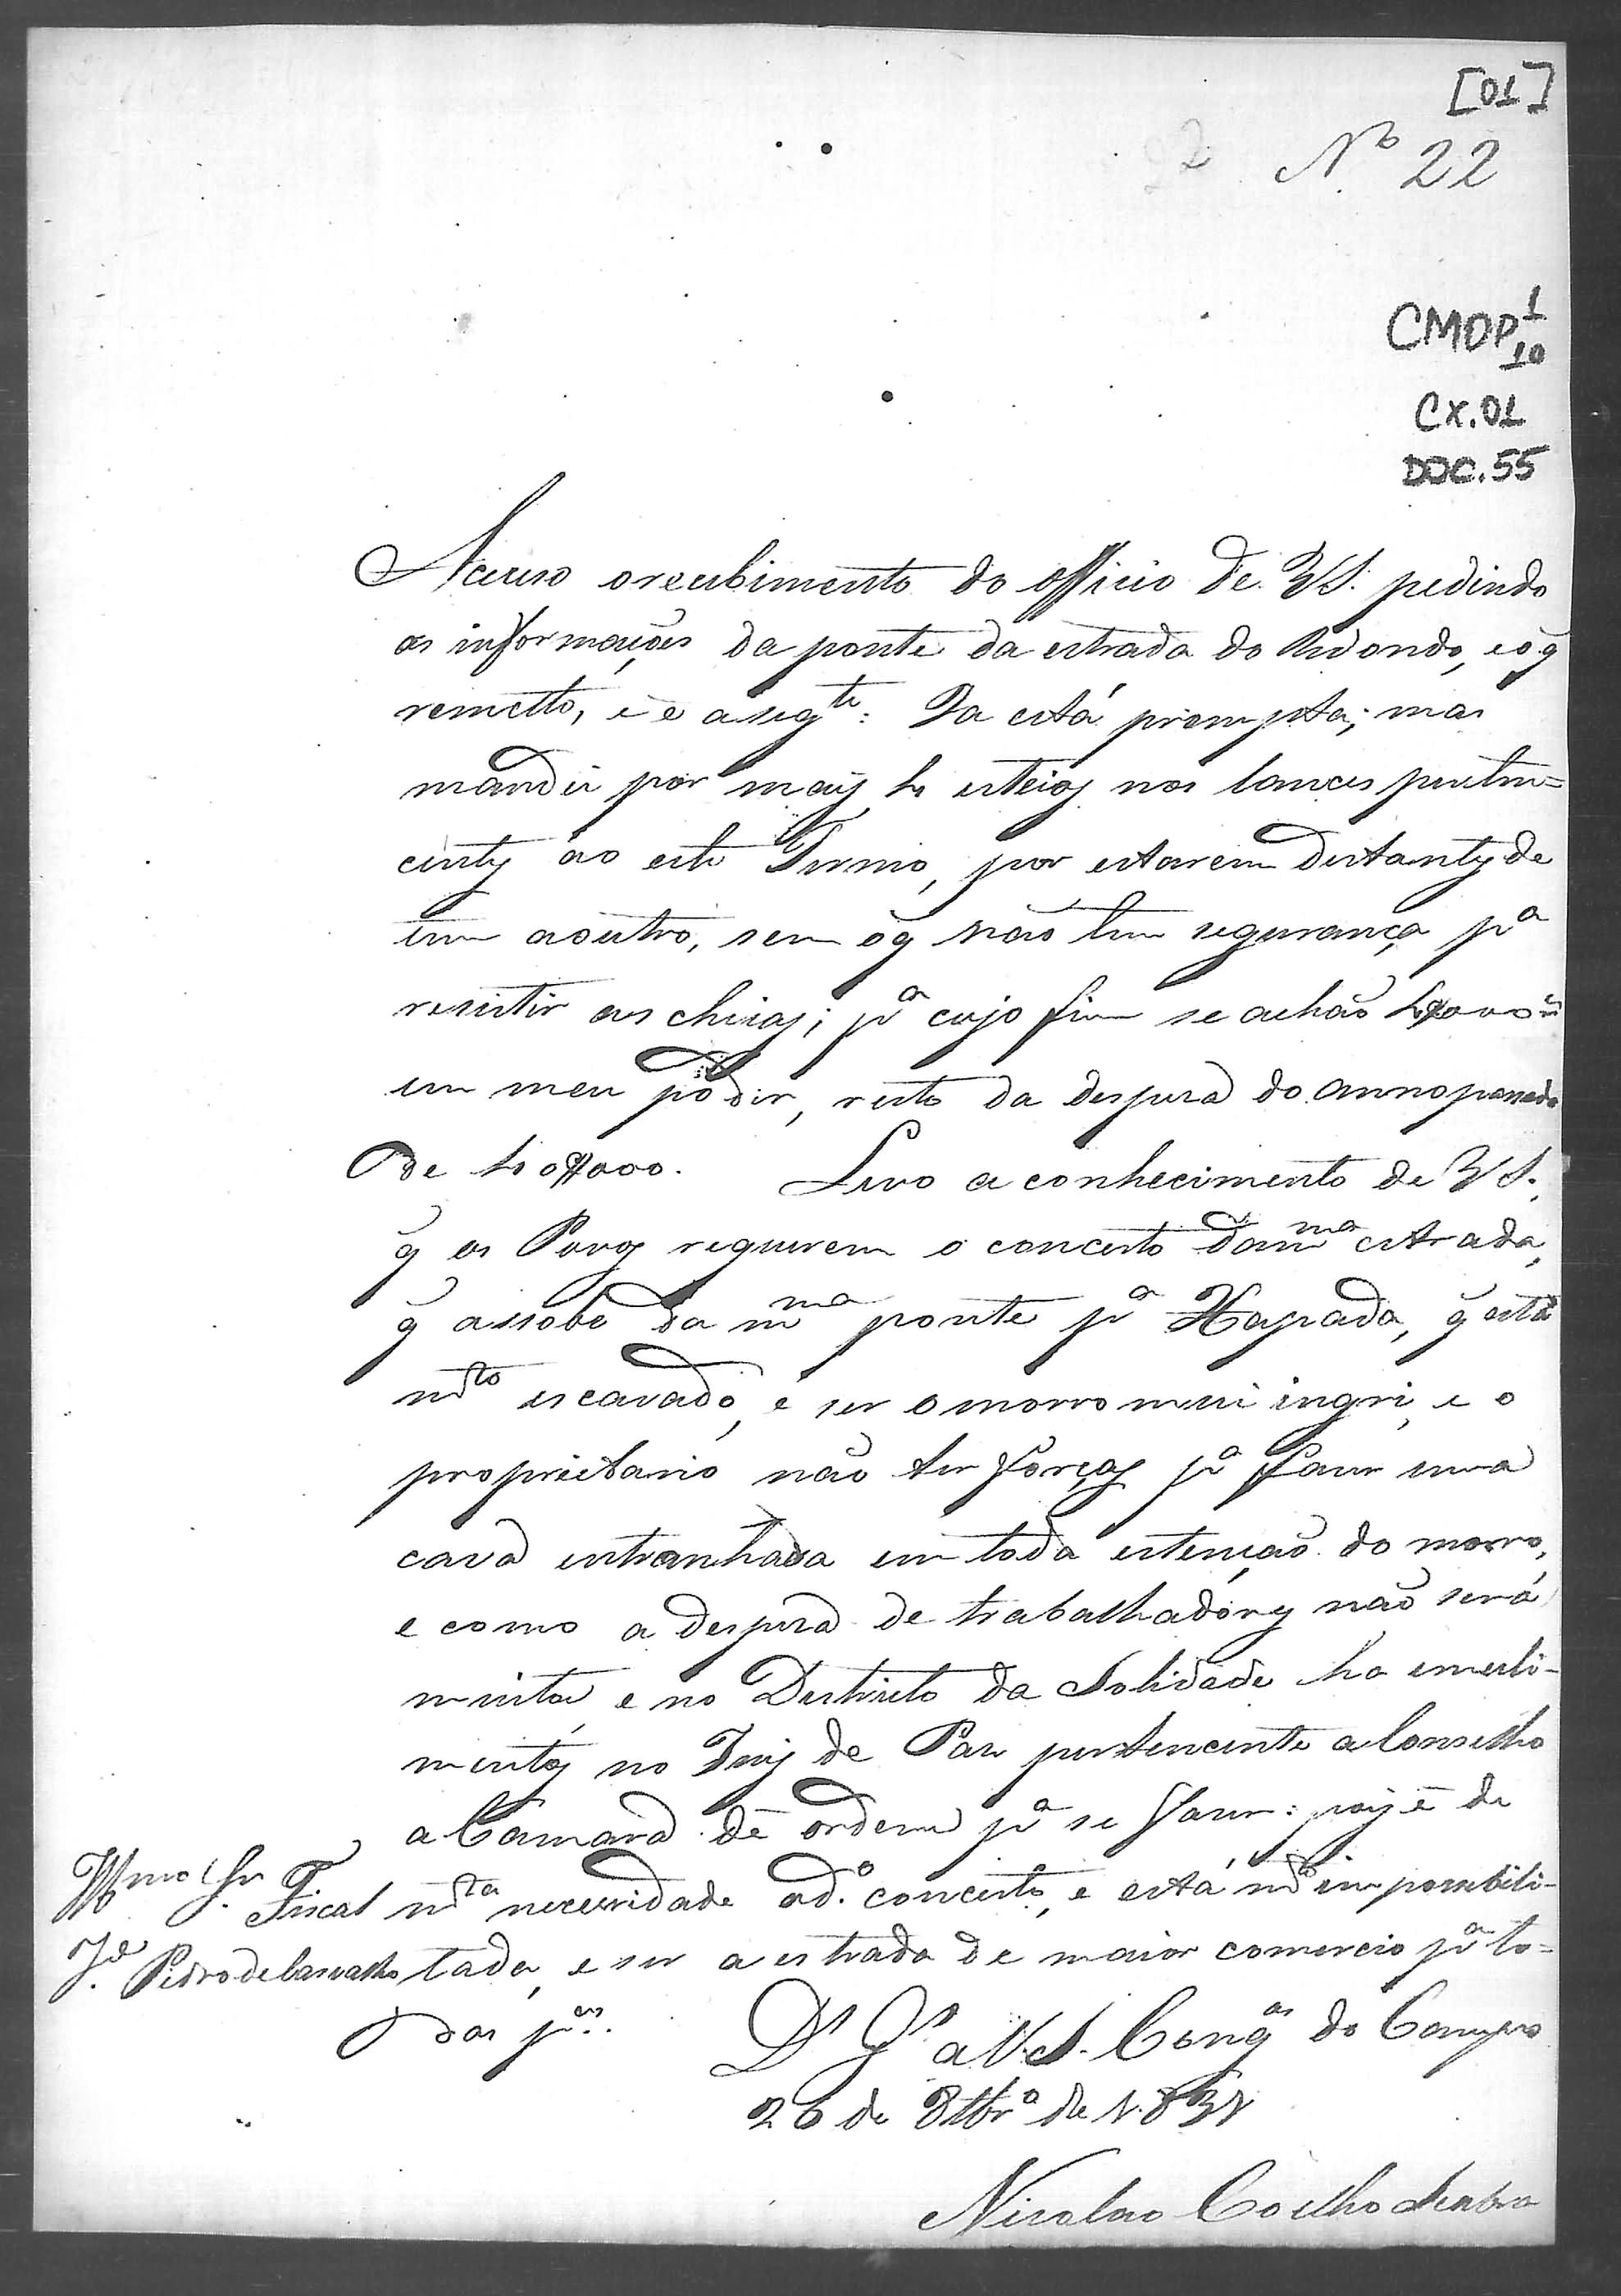 [01]
Nº 22
CMOP 1/10
CX.01
DOC.55
Acuso o recebimento do officio de VS. pedindo
as informações da ponte da estrada do Redondo, e o q̃
remetto, é a segte: Ja está prompta; mas
mandei por mais 4 esteios nos lances perten=
centes ao este Termo, por estarem distantes de
um a outro, sem o q̃ não tem segurança pa
resistir as cheias; pa cujo fim se achão 4$000 rs
em meu poder, resto da despeza do anno passado
de 40$000. Levo a conhecimento de VS.
q̃ os Povos requerem o concerto da mma estrada,
q̃ assobe da mma ponte pa Xapada, q̃ está
mto escavado, e ser o morro mui ingri, e o
proprietario não ter forças pa fazer uma
cava entranhada em toda estenção do morro,
e como a despeza de trabalhadores não será
muita e no Destricto da Solidade ha
no Juiz de Paz pertencente a Conselho
a Camara dê ordem pa se fazer: pois é de
mta necessidade o do concerto, e está mto impossibili-
tada, e ser a estrada de maior comercio pa to=
das ptes.
Illmo Snr Fiscal
Je Pedro de Carvalho
Ds Ge a V.S. Congas do Campo
26 de 8tbro de 1831
Nicolao Coelho Seabra